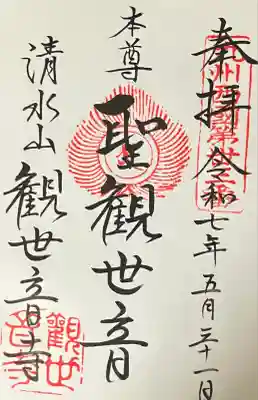 奉拝 令和七年五月三十一日
本尊
聖觀世音
清水山 觀世音寺
觀世音寺